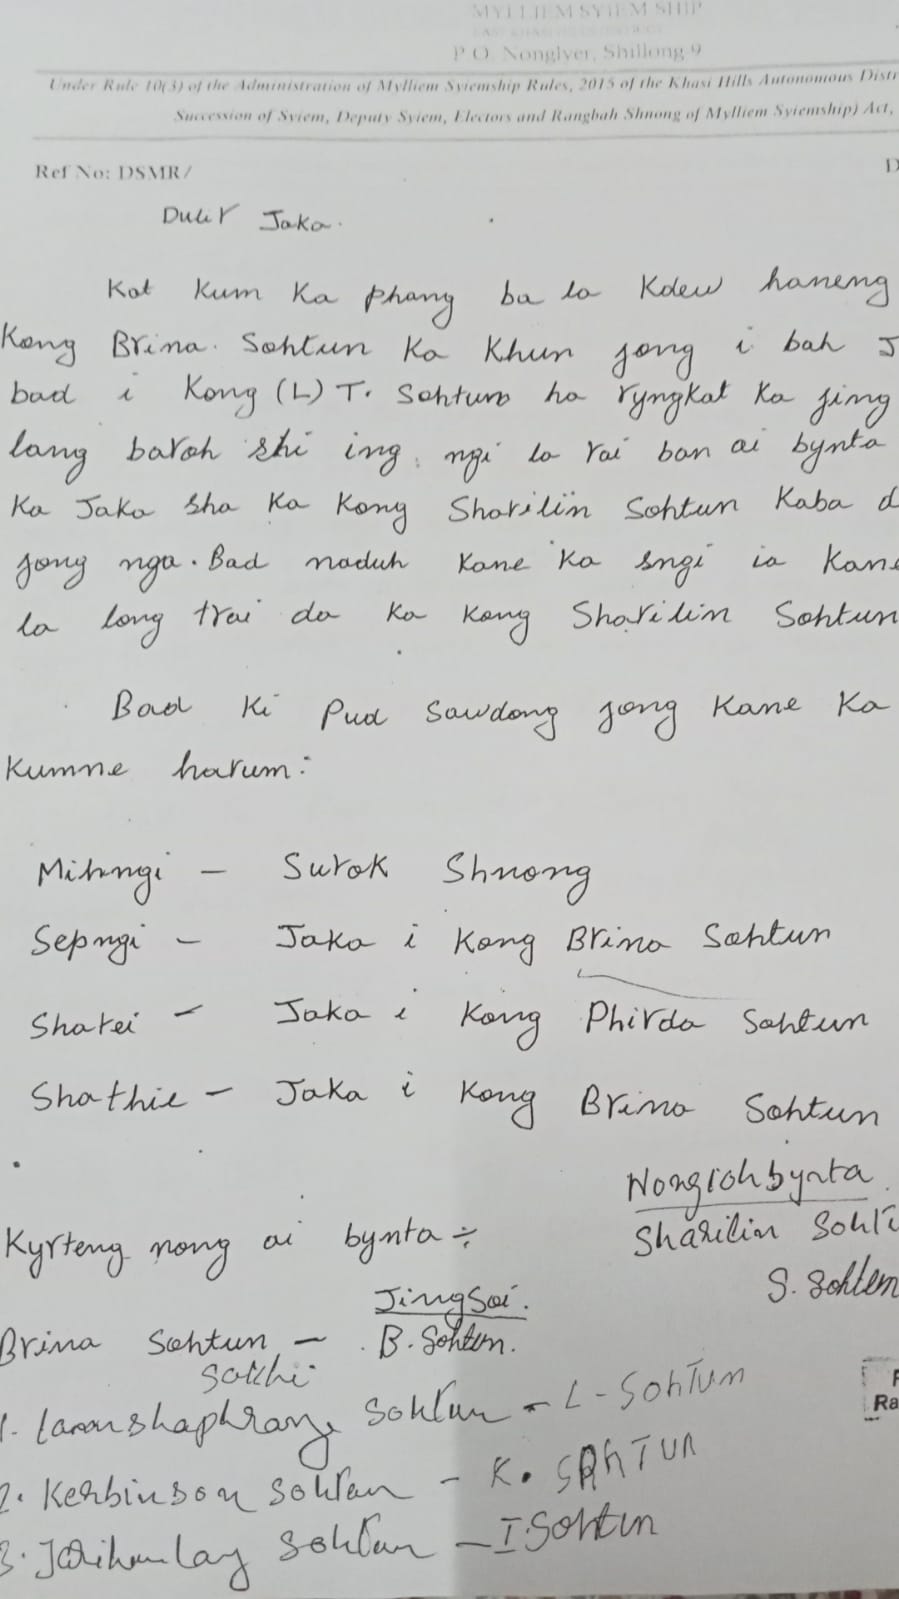 MYLLIEM SYIEM SHIP
P.O. Nonglyer, Shillong 9
Under Rule 10(3) of the Administration of Mylliem Syiemship Rules, 2015 of the Khasi Hills Autonomous Distr
Succession of Syiem, Deputy Syiem, Electors and Rangbah Shnong of Mylliem Syiemship) Act,
Ref No: DSMR/ D
Dulir Jaka.
Kat kum ka phang ba la kdew haneng
Kong Brina. Sohtun ka khun jong i bah J
bad i Kong (L) T. Sohtun ha ryngkat ka jing
lang baroh shi ing. ngi la rai ban ai bynta
ka Jaka sha ka Kong Sharilin Sohtun kaba d
jong nga. Bad naduh kane ka sngi ia kane
la long trai da ka kong Sharilin Sohtun
Bad ki pud sawdong jong kane ka
kumne harum:
Mihngi - Surok Shnong
Sepngi - Jaka i Kong Brina Sohtun
Shatei - Jaka i Kong Phirda Sohtun
Shathie - Jaka i Kong Brina Sohtun
Nongiohbynta
Kyrteng nong ai bynta ÷ Sharilin Sohtu
S. Sohtun
Jingsoi.
Brina Sohtun - B. Sohtun.
Sakhi
1. Sohtun - L - SOHTUN
2. Kerbinson Sohtun - K. SOHTUN
3. Sohtun - I. Sohtun
Ra